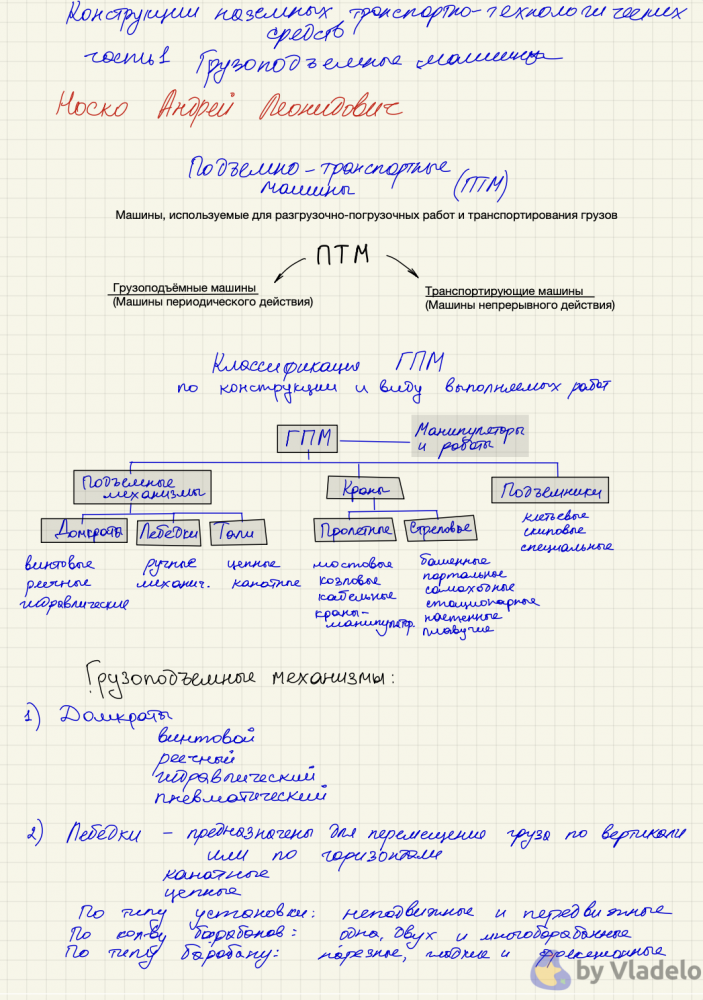 Конструкции наземных транспортно-технологических
средств
часть 1 Грузоподъемные машины
Носко Андрей Леонидович
Подъемно-транспортные
машины (ПТМ)
Машины, используемые для разгрузочно-погрузочных работ и транспортирования грузов
ПТМ
Грузоподъёмные машины
(Машины периодического действия)
Транспортирующие машины
(Машины непрерывного действия)
Классификация ГПМ
по конструкции и виду выполняемых работ
ГПМ
Манипуляторы
и роботы
Подъемные
механизмы
Краны
Подъемники
Домкраты
Лебедки
Тали
Пролетные
Стреловые
клетьевые
скиповые
специальные
винтовые
реечные
гидравлические
ручные
механич.
цепные
канатные
мостовые
козловые
кабельные
краны-
манипулятр.
башенные
портальные
самоходные
стационарные
настенные
плавучие
Грузоподъемные механизмы:
1) Домкраты
винтовой
реечный
гидравлический
пневматический
2) Лебедки – предназначены для перемещения груза по вертикали
или по горизонтали
канатные
цепные
По типу установки: неподвижные и передвижные
По кол-ву барабанов: одно, двух и многобарабанные
По типу барабану: нарезные, гладкие и фрикционные
by Vladelo